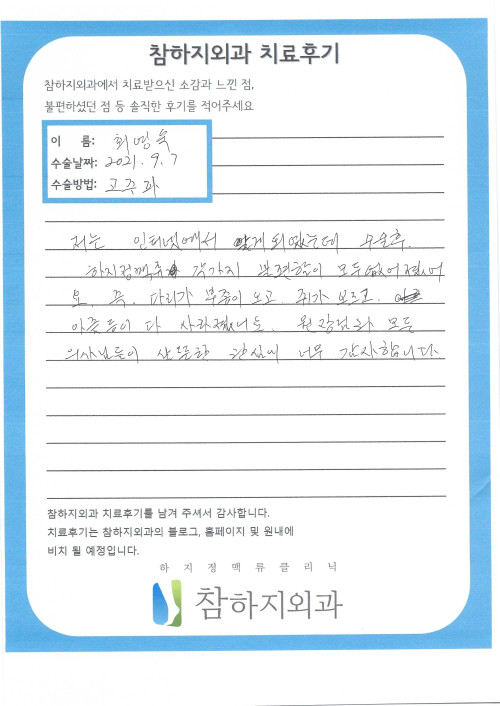 참하지외과 치료후기
참하지외과에서 치료받으신 소감과 느낀 점,
불편하셨던 점 등 솔직한 후기를 적어주세요
이 름: 최영욱
수술날짜: 2021. 9. 7
수술방법: 고주파
저는 인터넷에서 알게 되었는데 수술후
하지정맥류 각가지 불편함이 모두 없어졌어
요. 즉, 다리가 부종이 오고, 쥐가 오르고,
아픔 등이 다 사라졌네요. 원장님과 모든
의사님들이 관심에 너무 감사합니다.
참하지외과 치료후기를 남겨 주셔서 감사합니다.
치료후기는 참하지외과의 블로그, 홈페이지 및 원내에
비치 될 예정입니다.
하지정맥류클리닉
참하지외과